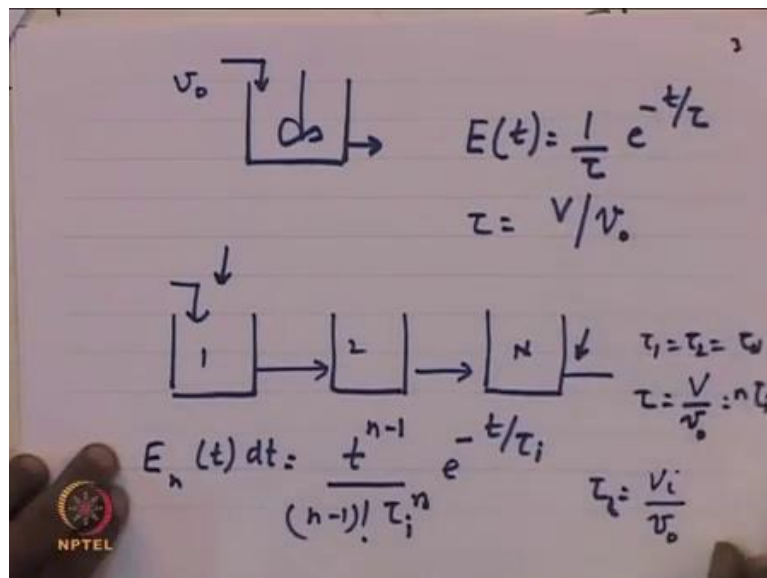 3
v₀
E(t) = 1/τ e^(-t/τ)
τ = V/v₀
1 2 N
τ₁ = τ₂ = τ
τ = V/v₀ = nτᵢ
Eₙ(t) dt = t^(n-1) / ((n-1)! τᵢⁿ) e^(-t/τᵢ)
τᵢ = Vᵢ/v₀
NPTEL